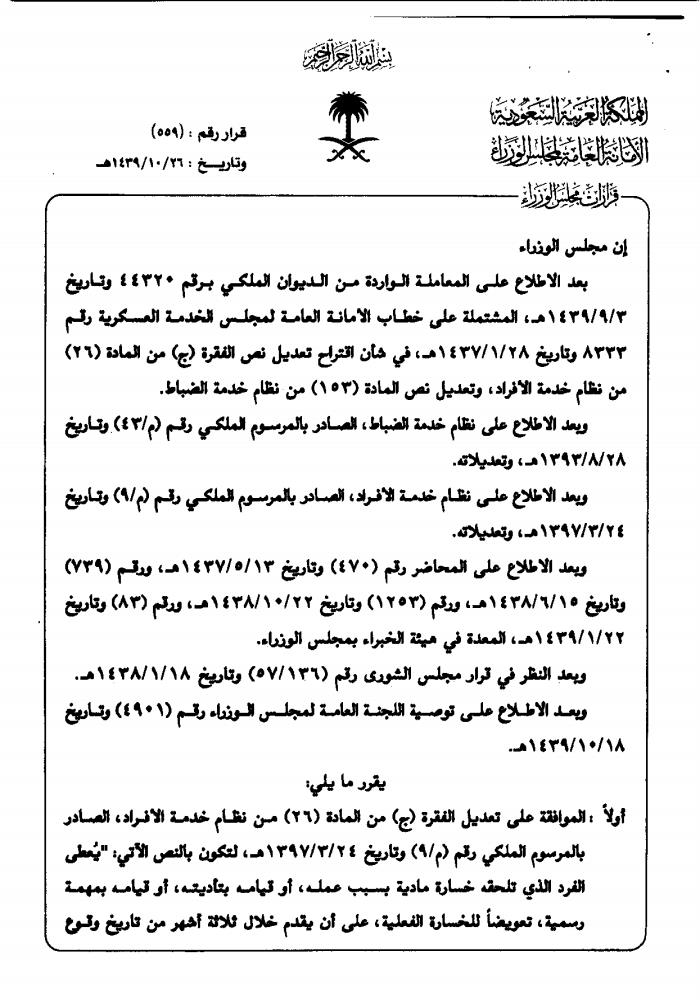 بسم الله الرحمن الرحيم
المملكة العربية السعودية
الأمانة العامة لمجلس الوزراء
قرار رقم : (٥٥٩)
وتاريـــخ : ١٤٣٩/١٠/٢٦هـ
قرارات مجلس الوزراء
إن مجلس الوزراء
بعد الاطلاع على المعاملة الواردة من الديوان الملكي برقم ٤٤٣٢٠ وتاريخ
١٤٣٩/٩/٣هـ، المشتملة على خطاب الأمانة العامة لمجلس الخدمة العسكرية رقم
٨٣٣٣ وتاريخ ١٤٣٧/١/٢٨هـ، في شأن اقتراح تعديل نص الفقرة (ج) من المادة (٢٦)
من نظام خدمة الأفراد، وتعديل نص المادة (١٥٣) من نظام خدمة الضباط.
وبعد الاطلاع على نظام خدمة الضباط، الصادر بالمرسوم الملكي رقم (م/٤٣) وتاريخ
١٣٩٣/٨/٢٨هـ، وتعديلاته.
وبعد الاطلاع على نظام خدمة الأفراد، الصادر بالمرسوم الملكي رقم (م/٩) وتاريخ
١٣٩٧/٣/٢٤هـ، وتعديلاته.
وبعد الاطلاع على المحاضر رقم (٤٧٠) وتاريخ ١٤٣٧/٥/١٣هـ، ورقم (٧٣٩)
وتاريخ ١٤٣٨/٦/١٥هـ، ورقم (١٢٥٣) وتاريخ ١٤٣٨/١٠/٢٢هـ، ورقم (٨٣) وتاريخ
١٤٣٩/١/٢٢هـ، المعدة في هيئة الخبراء بمجلس الوزراء.
وبعد النظر في قرار مجلس الشورى رقم (٥٧/١٣٦) وتاريخ ١٤٣٨/١/١٨هـ.
وبعد الاطلاع على توصية اللجنة العامة لمجلس الوزراء رقم (٤٩٠١) وتاريخ
١٤٣٩/١٠/١٨هـ.
يقرر ما يلي:
أولاً : الموافقة على تعديل الفقرة (ج) من المادة (٢٦) من نظام خدمة الأفراد، الصادر
بالمرسوم الملكي رقم (م/٩) وتاريخ ١٣٩٧/٣/٢٤هـ، لتكون بالنص الآتي: "يُعطى
الفرد الذي تلحقه خسارة مادية بسبب عمله، أو قيامه بتأديته، أو قيامه بمهمة
رسمية، تعويضاً للخسارة الفعلية، على أن يقدم خلال ثلاثة أشهر من تاريخ وقوع